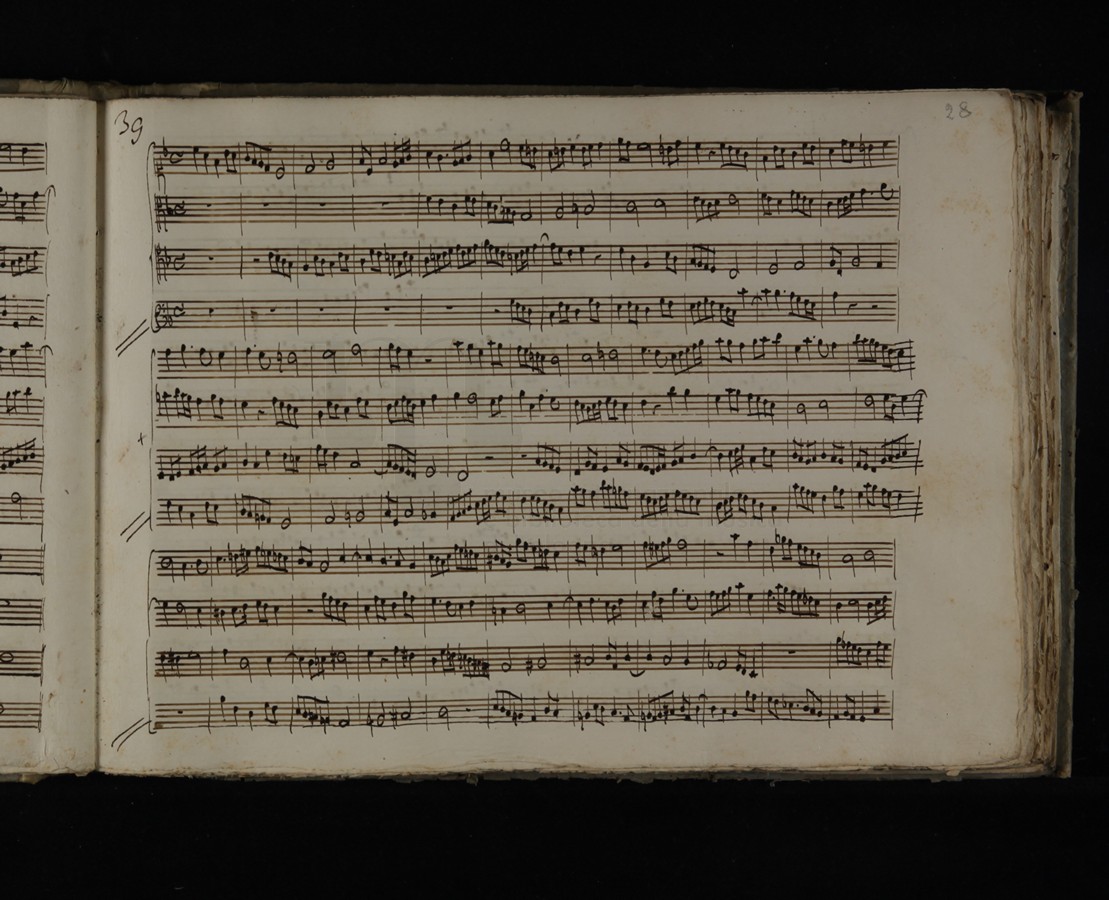 39
28